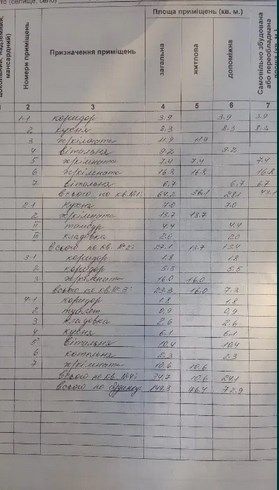 Площа приміщень (кв. м.)
Номери приміщень
Призначення приміщень
загальна
житлова
допоміжна
Самовільно збудована або переобладнана
1 2 3 4 5 6 7
1-1 коридор 3.9 3.9 3.9
2 кухня 8.3 8.3 8.3
3 житлкімната 11.9 11.9
4 вітальня 9.2 9.2
5 житлкімната 7.4 7.4 7.4
6 житлкімната 16.8 16.8 16.8
7 вітальня 6.7 6.7 6.7
всього по кв. №1:
2-1 кухня 7.0 7.0
2 житлкімната 13.7 13.7
ІІ тамбур 4.4 4.4
ІІІ кладовка 2.0 2.0
всього по кв. №2: 27.1 13.7 13.4
3-1 коридор 1.8 1.8
2 коридор 5.5 5.5
3 житлкімнат 16.0 16.0
всього по кв. №3: 23.3 16.0 7.3
4-1 коридор 1.8 1.8
2 туалет 0.9 0.9
3 кладовка 2.6 2.6
4 кухня 6.1 6.1
5 вітальня 10.4 10.4
6 котельня 2.3 2.3
7 житлкімнат 10.6 10.6
всього по кв. №4: 34.7 10.6 24.1
всього по будинку